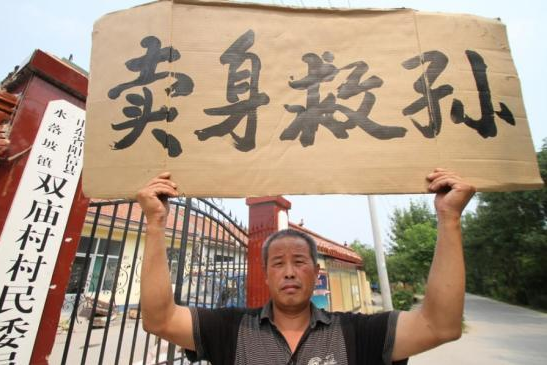 卖身救孙
山东省阳信县
水落坡镇
双庙村村民委